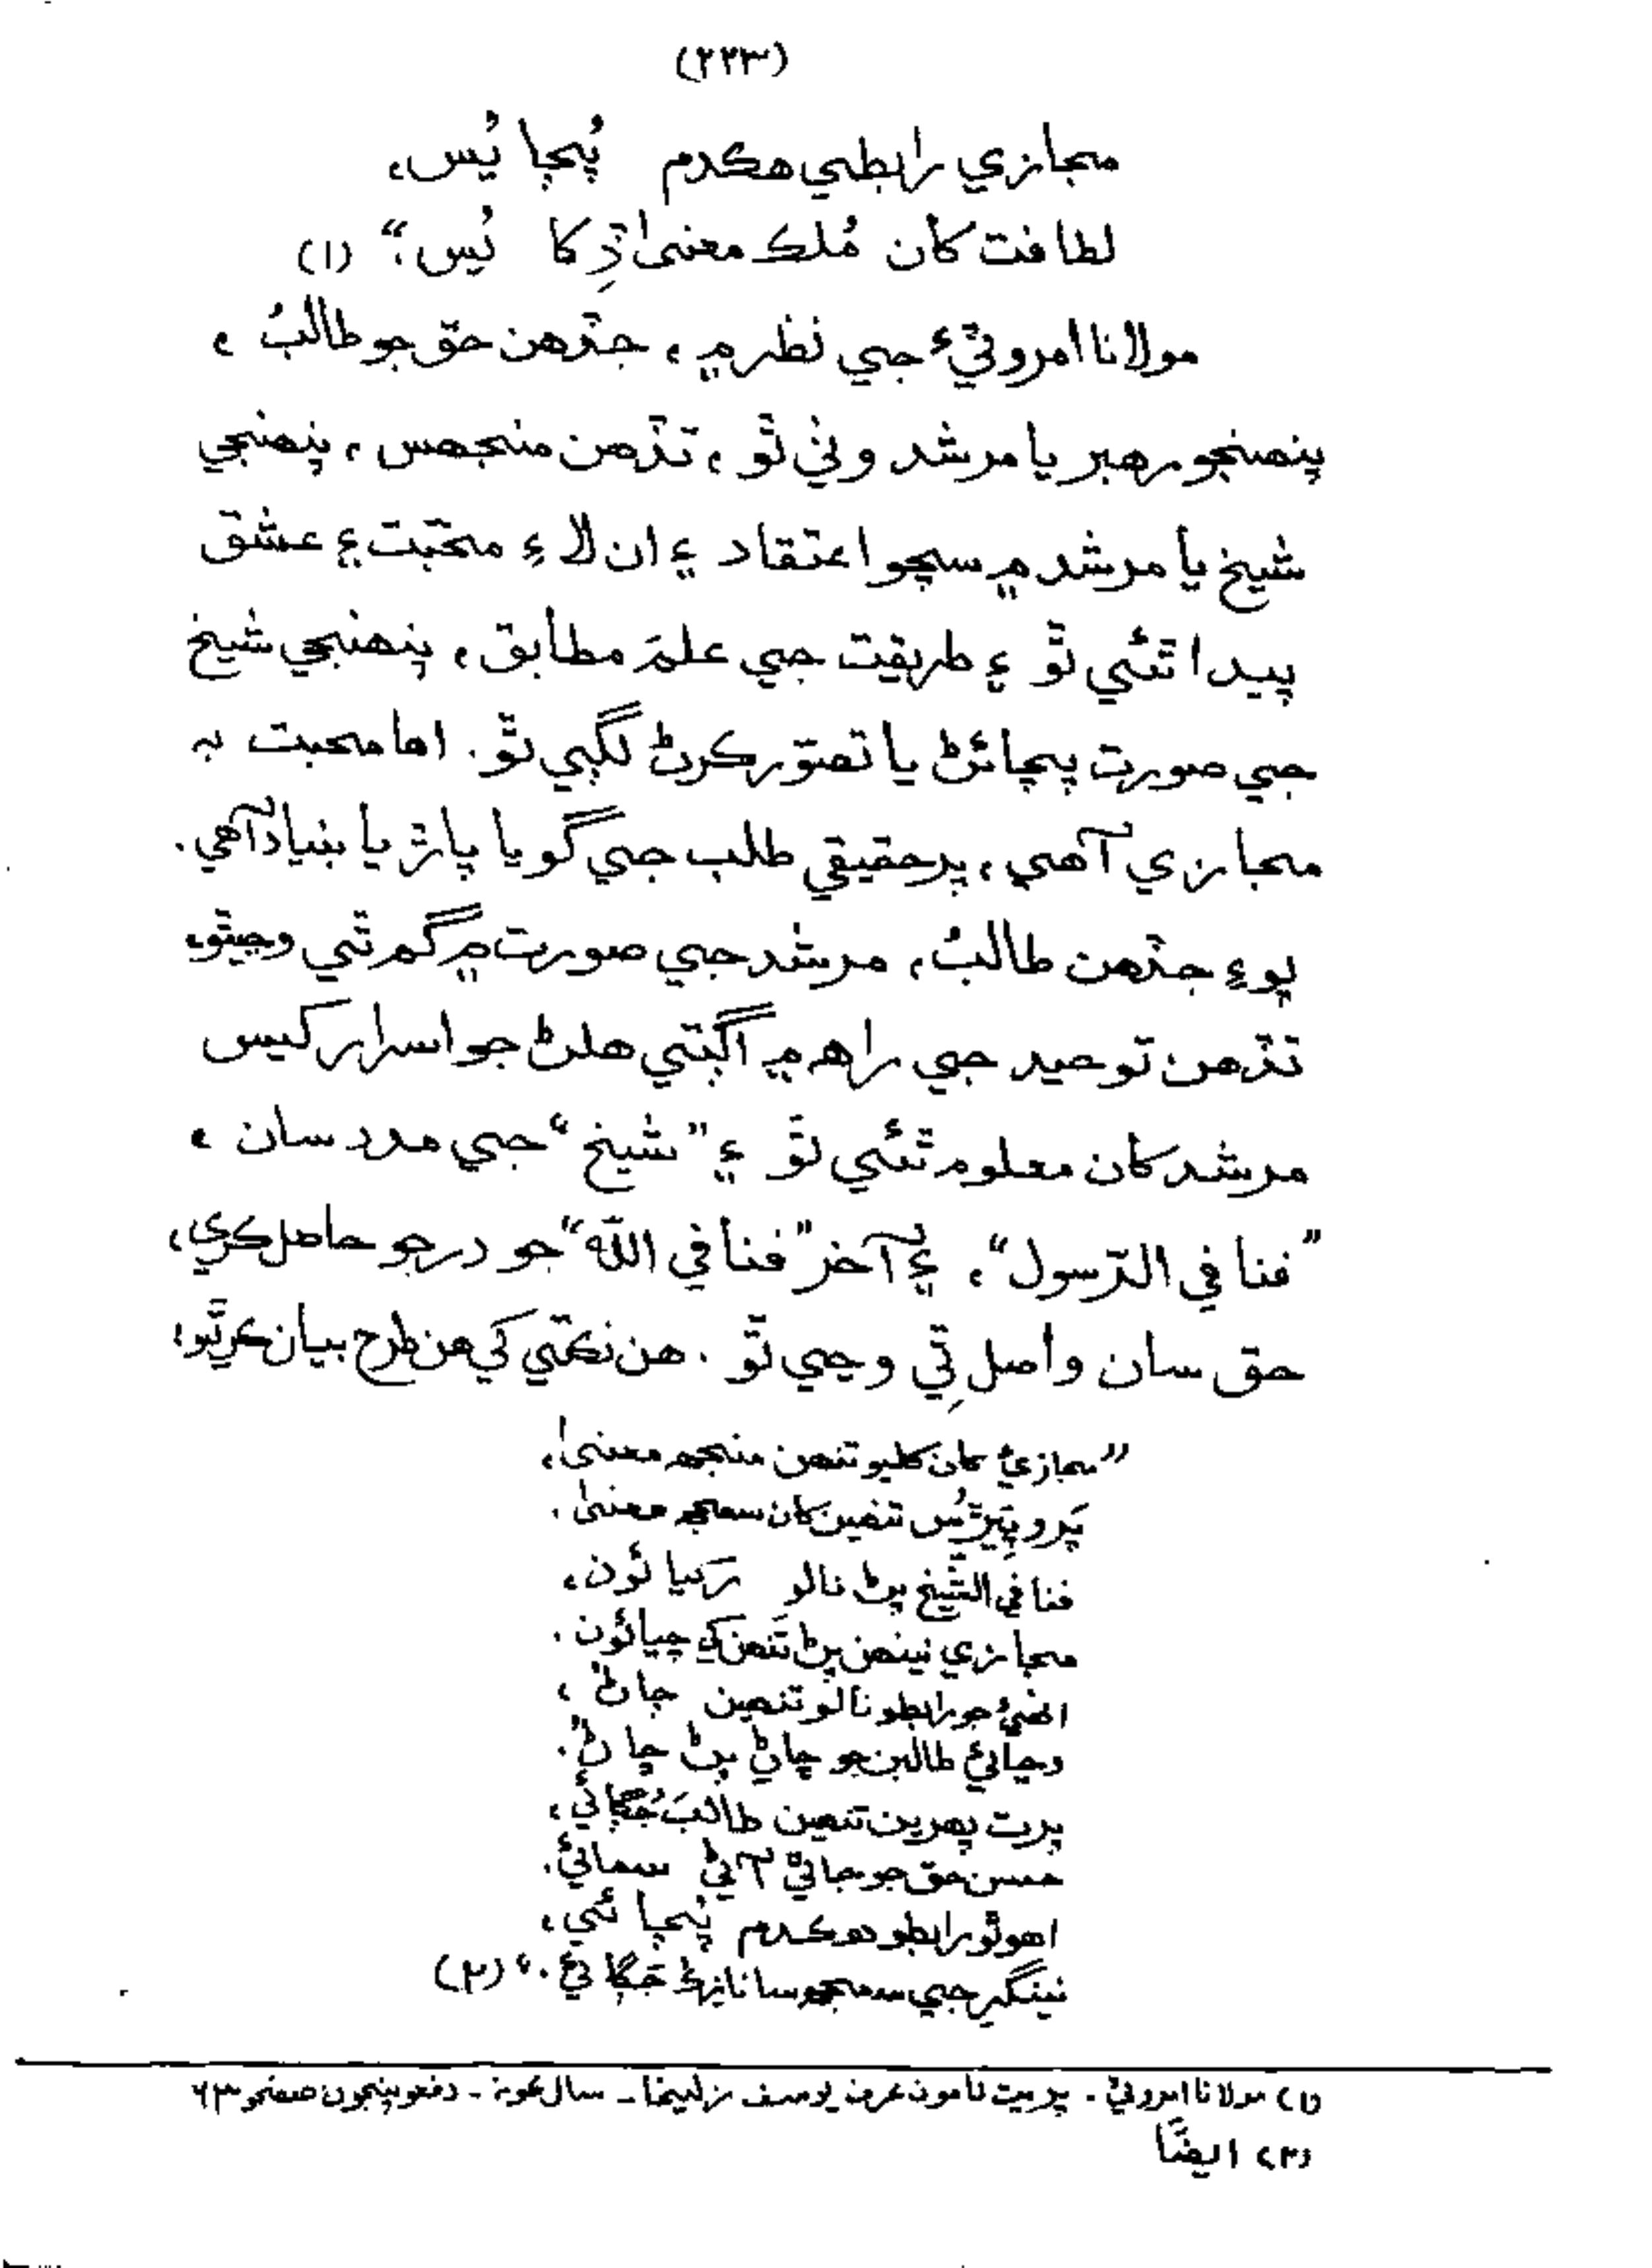 (۲۲۳)
مجازي رابطي هڪدم پُڄا ئُس،
لطافت کان مُلڪ معنيٰ ڏِکا ئُس؛“ (۱)
مولانا امروٽيءَ جي نظر ۾، جڏهن حق جو طالبُ،
پنهنجو رهبر يا مرشد وٺي ٿو، تڏهن منجهس، پنهنجي
شيخ يا مرشد ۾ سچو اعتقاد ۽ ان لاءِ محبّت ۽ عشق
پيدا ٿئي ٿو ۽ طريقت جي علمَ مطابق، پنهنجي شيخ
جي صورت پچائڻ يا تصوّر ڪرڻ لڳي ٿو. اها محبت بہ
مجازي آهي، پر حقيقي طلب جي گويا پاڙ يا بنياد آهي.
پوءِ جڏهن طالبُ، مرشد جي صورت ۾ گم ٿي وڃيٿو،
تڏهن توحيد جي راهہ ۾ اڳتي هلڻ جو اسرار کيس
مرشد کان معلوم ٿئي ٿو ۽ ”شيخ“ جي مدد سان،
”فنا في الرّسول“، ۽ آخر ”فنا في اللّٰه“ جو درجو حاصل ڪري،
حق سان واصل ٿِي وڃي ٿو. هن نڪتي کي هن طرح بيان ڪريٿو:
”مجازيءَ کان کليو تنهن منجهہ معنيٰ،
پَرو پِيَڙُس تنهين کان سمجهہ معنيٰ.
فنا في الشّيخ پڻ نالو رَکيائون،
مجازي نينهن پڻ تنهن کي چيائون.
انهيءَ جو رابطو نالو تنهين ڄاڻ،
طالبن جو ڄاڻ پڻ
پرت پهرين تنهين طالبَ
حسن حق جو آڻي سمائي.
اهو ٿو رابطو هڪدم پُڄائي،
نينگرِ جي سمجهہ سانانہ (۲)
(۱) مولانا امروٽي - پريت نامون عرف يوسف زليخا - دفعو پنجون صفحو ۶۳
(۲) ايضًا